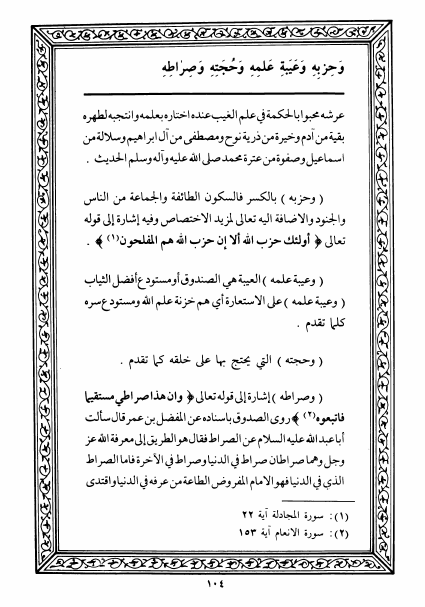 وَحِزبِهِ وَعَيبَةِ عَلمِهِ وَحُجَتِهِ وَصِراطِهِ
عرشه محبوا بالحكمة في علم الغيب عنده اختاره بعلمه وانتجبه لطهره
بقية من آدم وخيرة من ذرية نوح ومصطفى من آل ابراهيم وسلالة من
اسماعيل وصفوة من عترة محمد صلى الله عليه وآله وسلم الحديث .
( وحزبه ) بالكسر فالسكون الطائفة والجماعة من الناس
والجنود والاضافة اليه تعالى لمزيد الاختصاص وفيه إشارة إلى قوله
تعالى ﴿ أولئك حزب الله ألا إن حزب الله هم المفلحون(١) ﴾ .
( وعيبة علمه ) العيبة هي الصندوق أو مستودع أفضل الثياب
( وعيبة علمه ) على الاستعارة أي هم خزنة علم الله ومستودع سره
كلما تقدم .
( وحجته ) التي يحتج بها على خلقه كما تقدم .
( وصراطه ) إشارة إلى قوله تعالى ﴿ وان هذا صراطي مستقيما
فاتبعوه(٢) ﴾ روى الصدوق باسناده عن المفضل بن عمر قال سألت
أبا عبد الله عليه السلام عن الصراط فقال هو الطريق إلى معرفة الله عز
وجل وهما صراطان صراط في الدنيا وصراط في الآخرة فاما الصراط
الذي في الدنيا فهو الامام المفروض الطاعة من عرفه في الدنيا واقتدى
(١): سورة المجادلة آية ٢٢
(٢): سورة الانعام آية ١٥٣
١٠٤